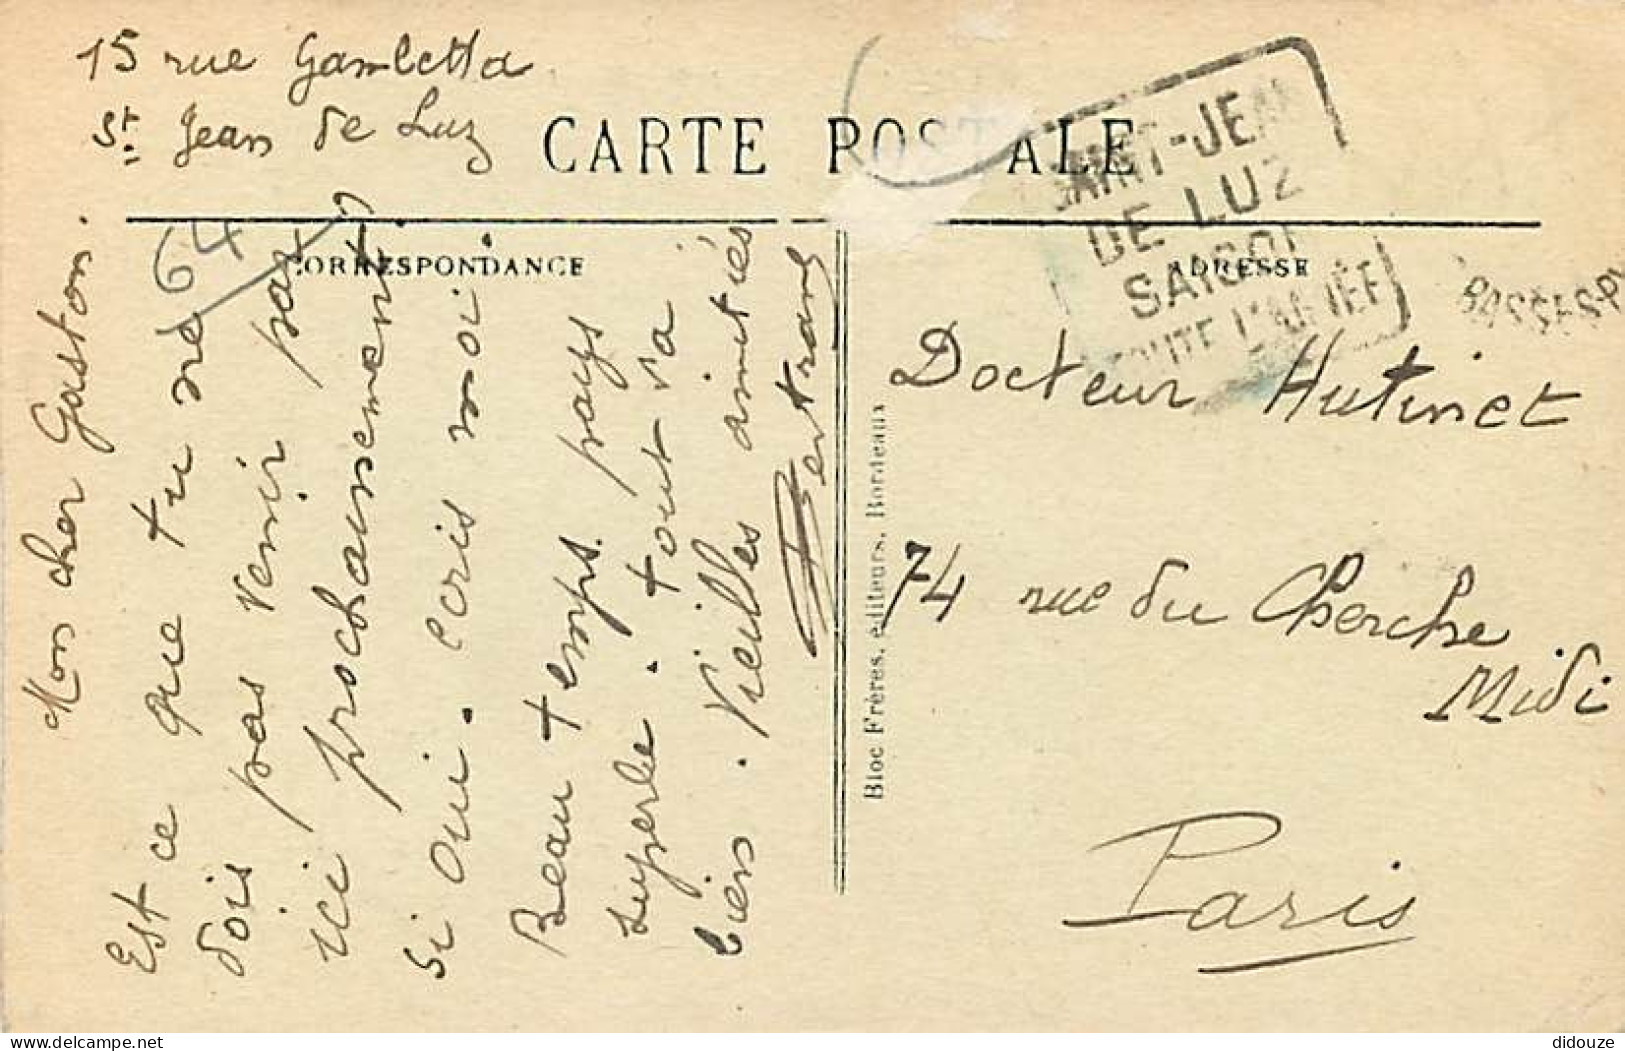 15 rue Gambetta
St. Jean de Luz
CARTE POSTALE
SAINT-JEAN
DE LUZ
SAISON
TOUTE L'ANNÉE
BASSES-PY
64
CORRESPONDANCE
ADRESSE
Mon cher Gaston.
Est ce que tu ne
dois pas venir par
ici prochainement?
Si oui. ecris moi
Beau temps. pays
superbe. tout va
bien. Vieilles amitiés
Bertrand
Bloc Frères, éditeurs, Bordeaux
Docteur Hutinet
74 rue du Cherche
Midi
Paris
delcampe.net
didouze